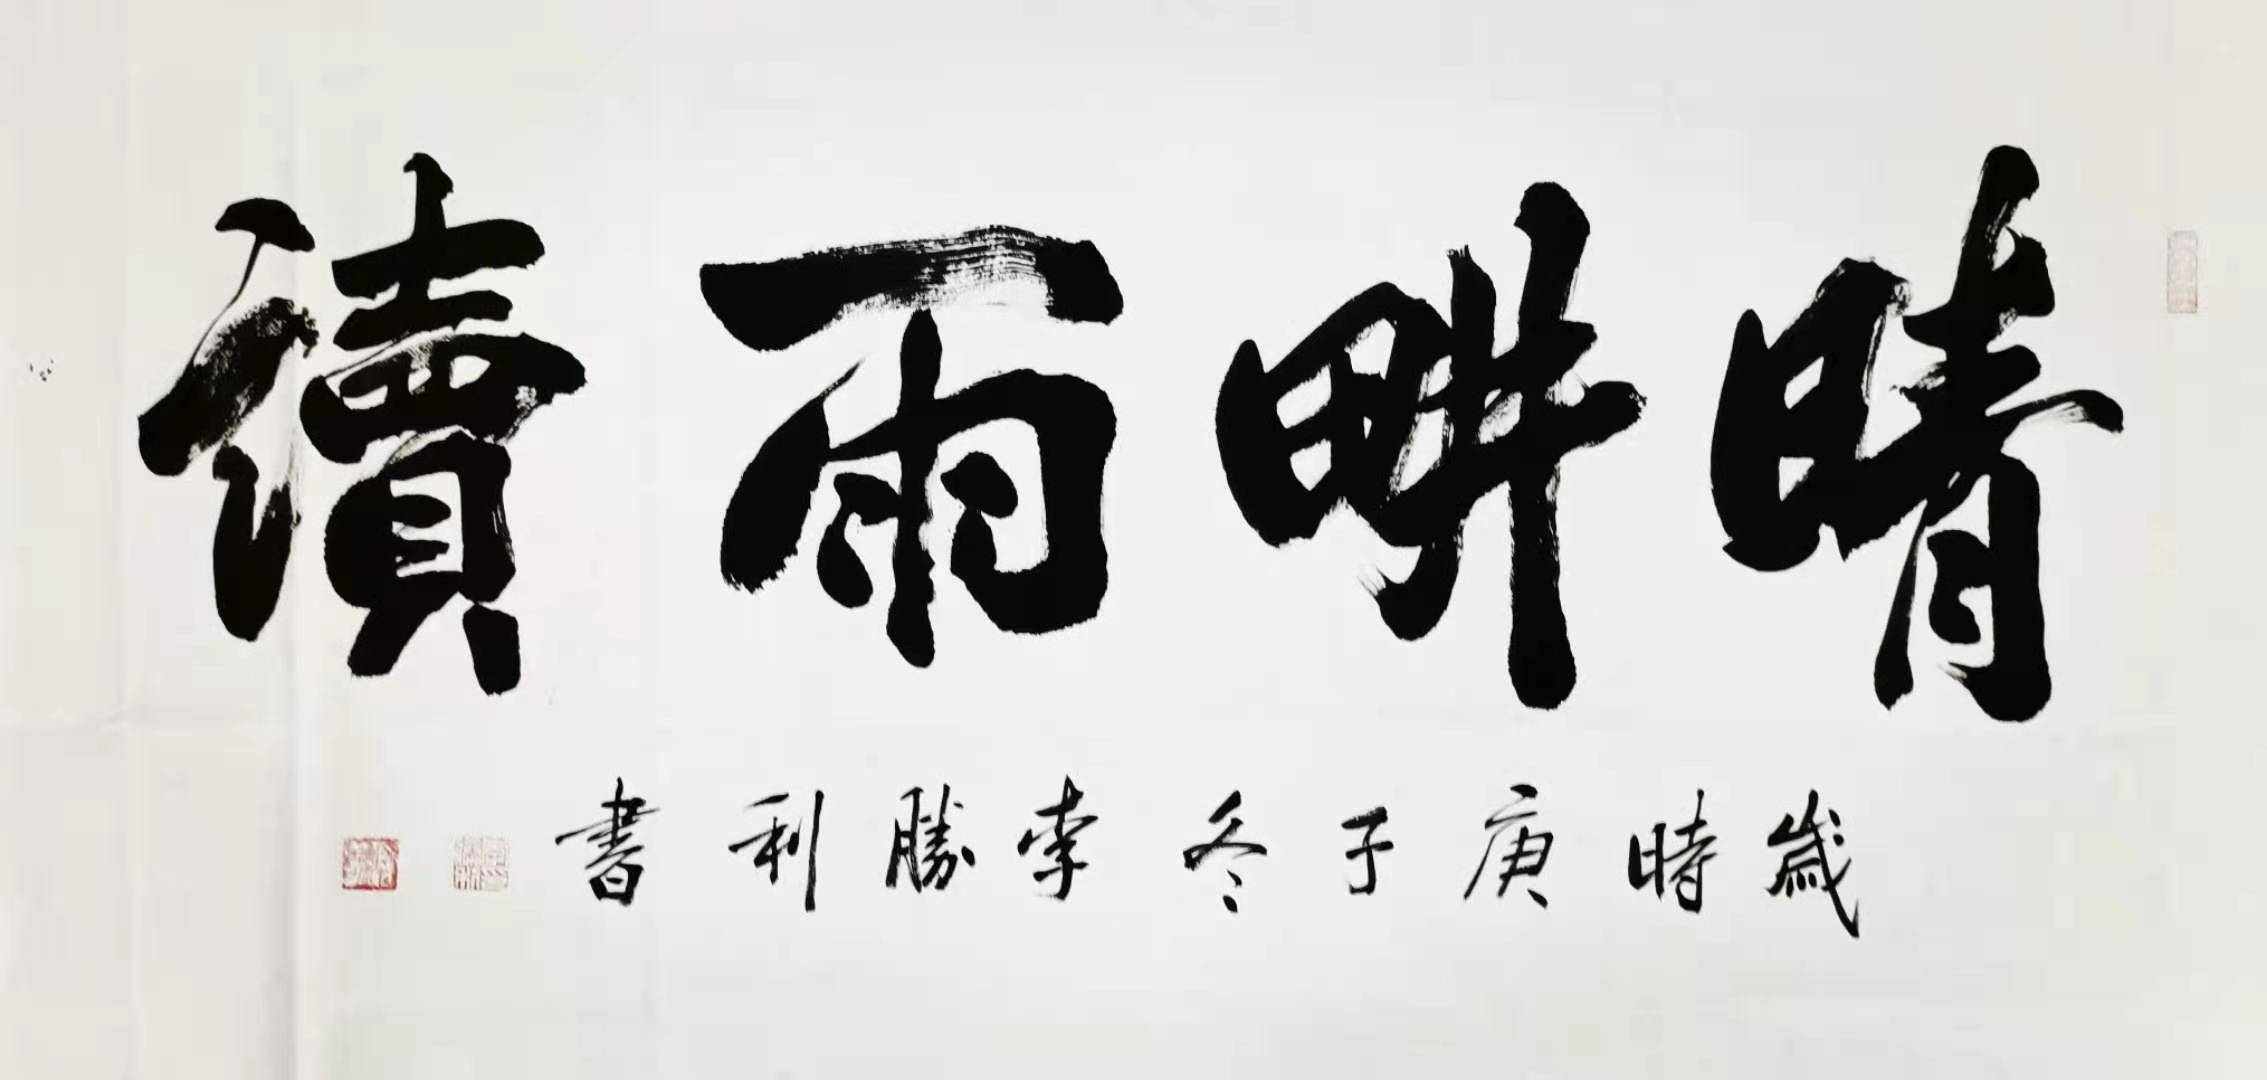 晴畊雨讀
歳時庚子冬李勝利書